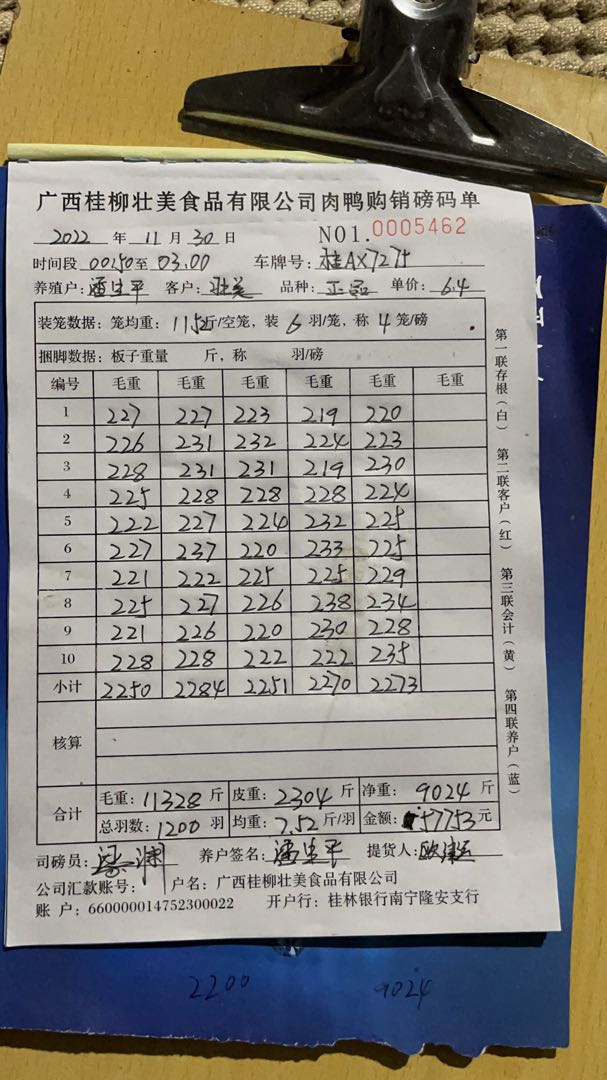 广西桂柳壮美食品有限公司肉鸭购销磅码单
2022 年 11 月 30 日 NO1.0005462
时间段 00:50至 03.00 车牌号: 桂AX7275
养殖户: 潘生平 客户: 壮美 品种: 正品 单价: 6.4
装笼数据: 笼均重: 11.52斤/空笼, 装 6 羽/笼, 称 4 笼/磅
捆脚数据: 板子重量 斤, 称 羽/磅
编号 毛重 毛重 毛重 毛重 毛重 毛重
1 227 227 223 219 220
2 226 231 232 224 223
3 228 231 231 219 230
4 225 228 228 228 224
5 222 227 224 232 225
6 227 237 220 233 225
7 221 222 225 225 229
8 225 227 226 238 234
9 221 226 220 230 228
10 228 228 222 222 235
小计 2250 2284 2251 2270 2273
核算
合计 毛重: 11328 斤 皮重: 2304 斤 净重: 9024 斤
总羽数: 1200 羽 均重: 7.52 斤/羽 金额: 57753 元
司磅员: 养户签名: 潘生平 提货人:
公司汇款账号: 户名: 广西桂柳壮美食品有限公司
账 户: 660000014752300022 开户行: 桂林银行南宁隆安支行
第一联存根(白) 第二联客户(红) 第三联会计(黄) 第四联养户(蓝)
2200 9024